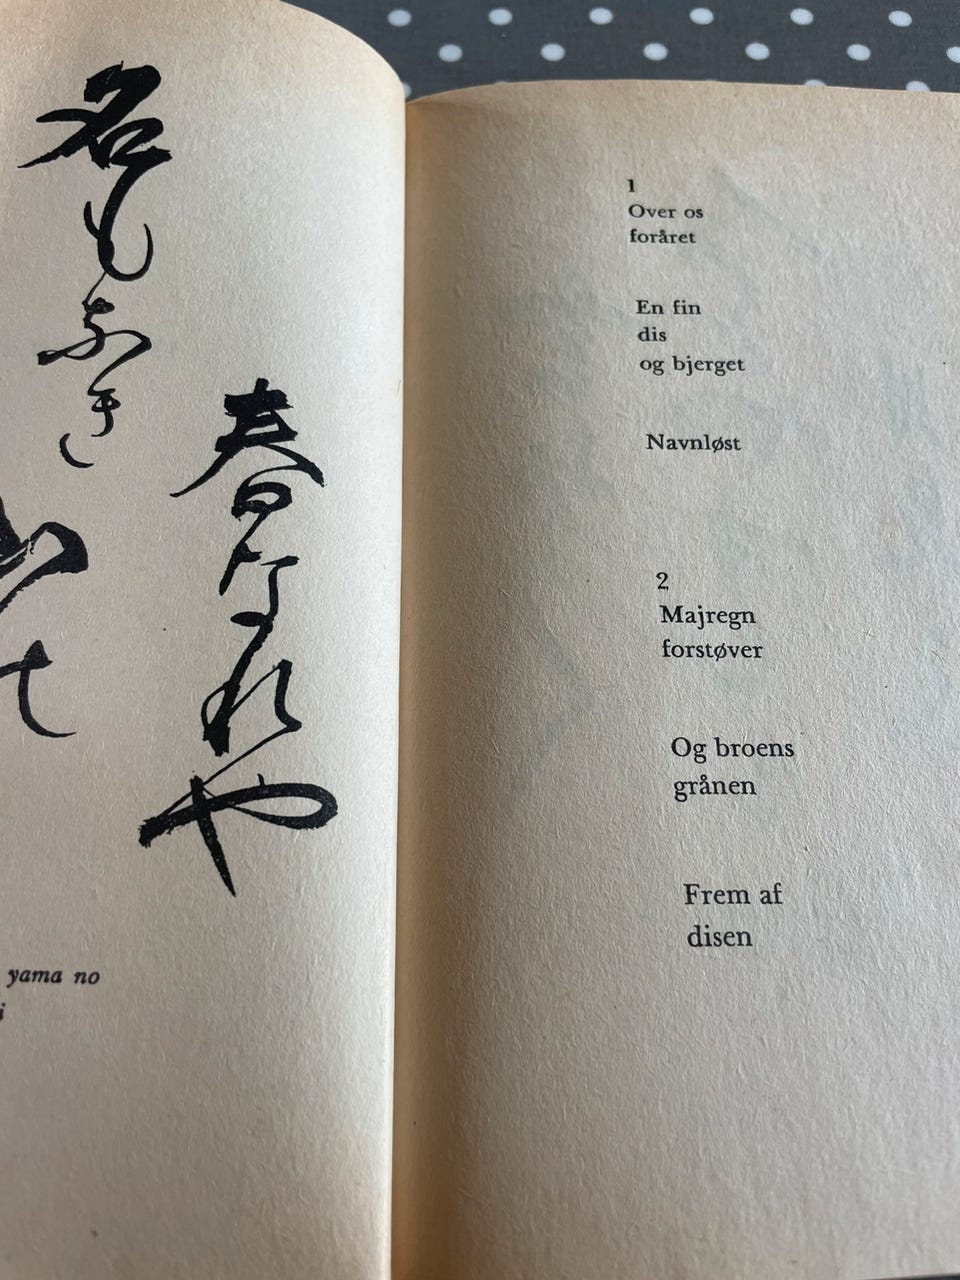 春なれや
名もなき
山
yama no
i
1
Over os
foråret
En fin
dis
og bjerget
Navnløst
2
Majregn
forstøver
Og broens
grånen
Frem af
disen